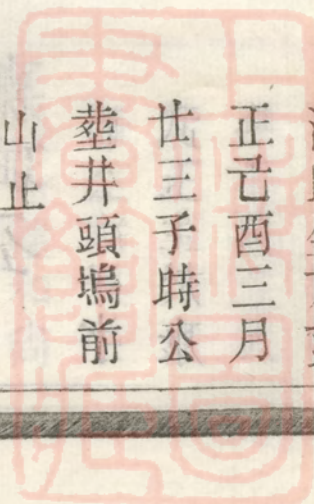 正己酉三月
廿三子時公
塟井頭塢前
山止